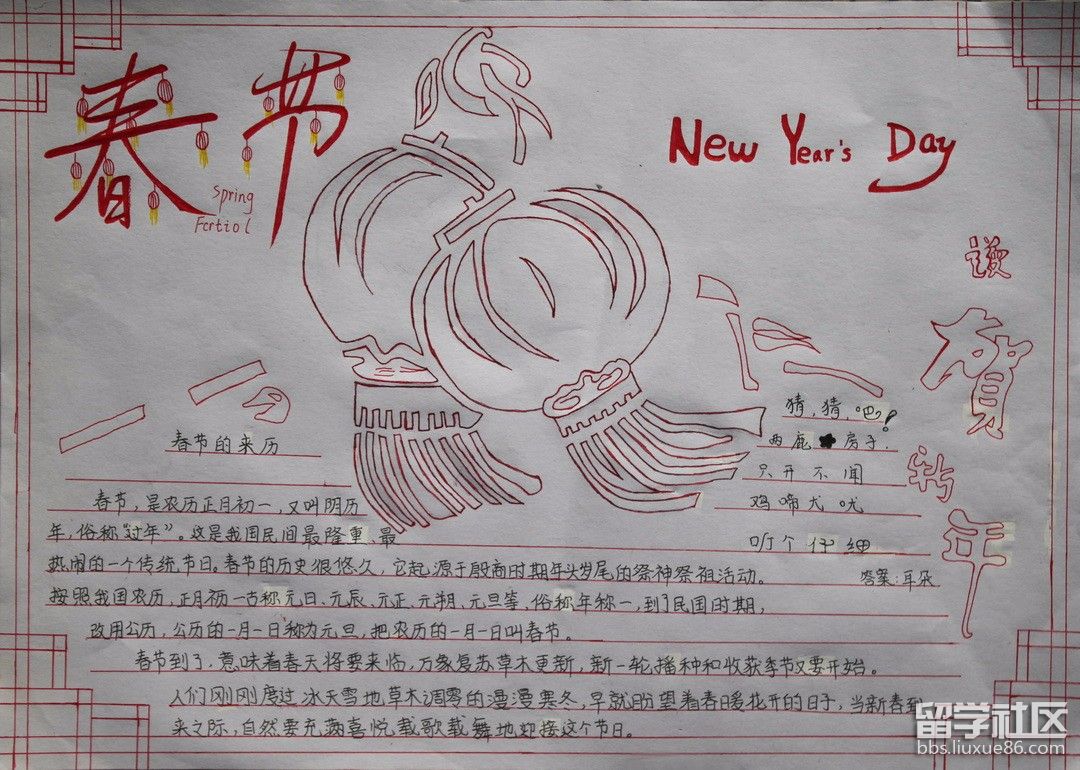 春节
Spring
Fcrtiol
New Year's Day
谨
贺
新
年
春节的来历
春节，是农历正月初一，又叫阴历
年，俗称"过年"。这是我国民间最隆重、最
热闹的一个传统节日。春节的历史很悠久，它起源于殷商时期年头岁尾的祭神祭祖活动。
按照我国农历，正月初一古称元日、元辰、元正、元朔、元旦等、俗称年称一，到了民国时期，
改用公历，公历的一月一日称为元旦，把农历的一月一日叫春节。
春节到了，意味着春天将要来临，万象复苏草木更新，新一轮播种和收获季节又要开始。
人们刚刚度过冰天雪地草木凋零的漫漫寒冬，早就盼望着春暖花开的日子，当新春到
来之际，自然要充满喜悦载歌载舞地迎接这个节日。
猜，猜，吧！
两扇房子，
只开不闻
鸡啼犬吠
听个仔细
答案：耳朵
留学社区
bbs.liuxue86.com